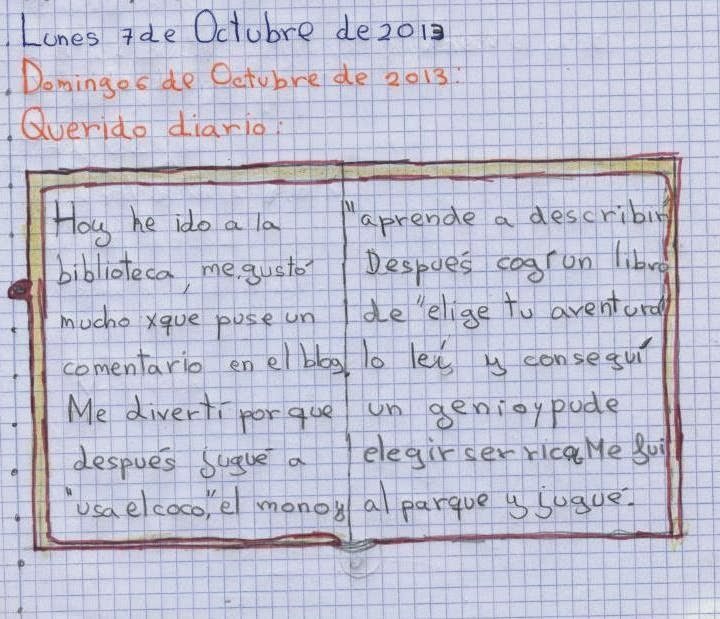 Lunes 7 de Octubre de 2013
Domingo 6 de Octubre de 2013:
Querido diario:
Hoy he ido a la
biblioteca, me gustó
mucho xque puse un
comentario en el blog.
Me divertí por que
después jugué a
"usa el coco", el mono y
"aprende a describir"
Después cogí un libro
de "elige tu aventura"
lo leí y conseguí
un genio y pude
elegir ser rica. Me fui
al parque y jugué.